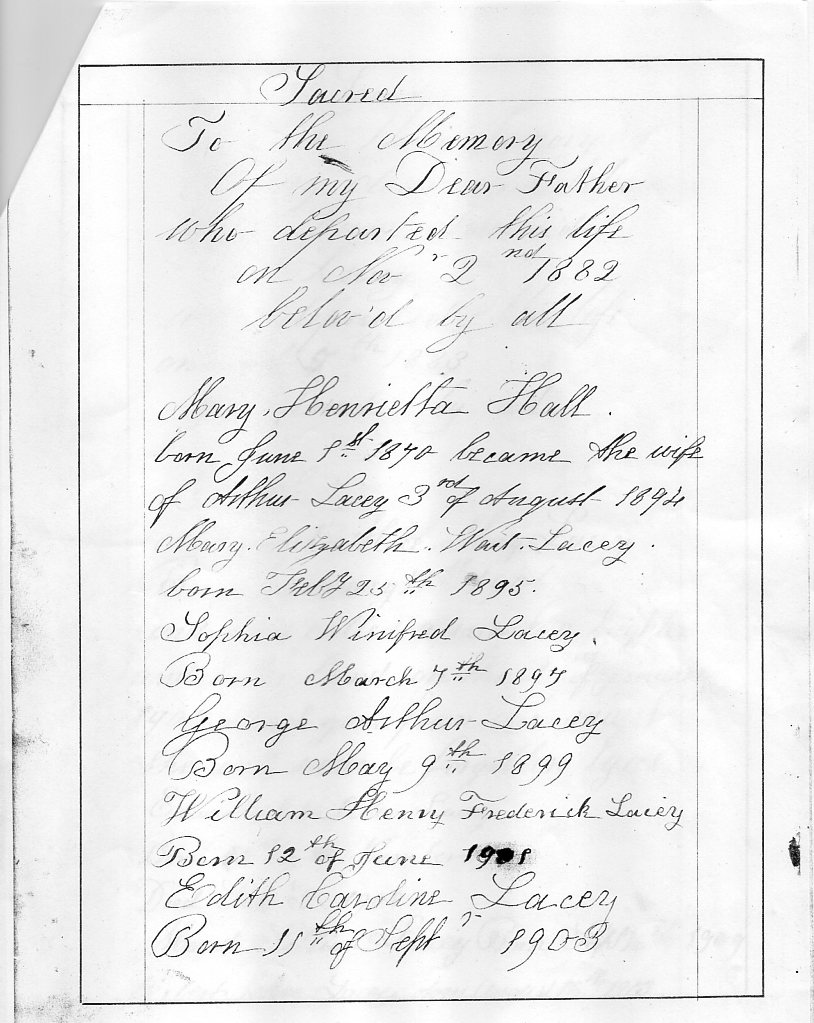 Sacred
To the Memory
Of my Dear Father
who departed this life
on Nov 2nd 1882
belov'd by all
Mary. Henrietta Hall.
born June 1st 1870 became the wife
of Arthur Lacey 3rd of August 1894
Mary. Elizabeth. Wait. Lacey.
born Feby 25th 1895.
Sophia Winifred Lacey.
Born March 7th 1897
George Arthur Lacey
Born May 9th 1899
William Henry Frederick Lacey
Born 12th of June 1901
Edith Caroline Lacey
Born 11th of Sept 1903